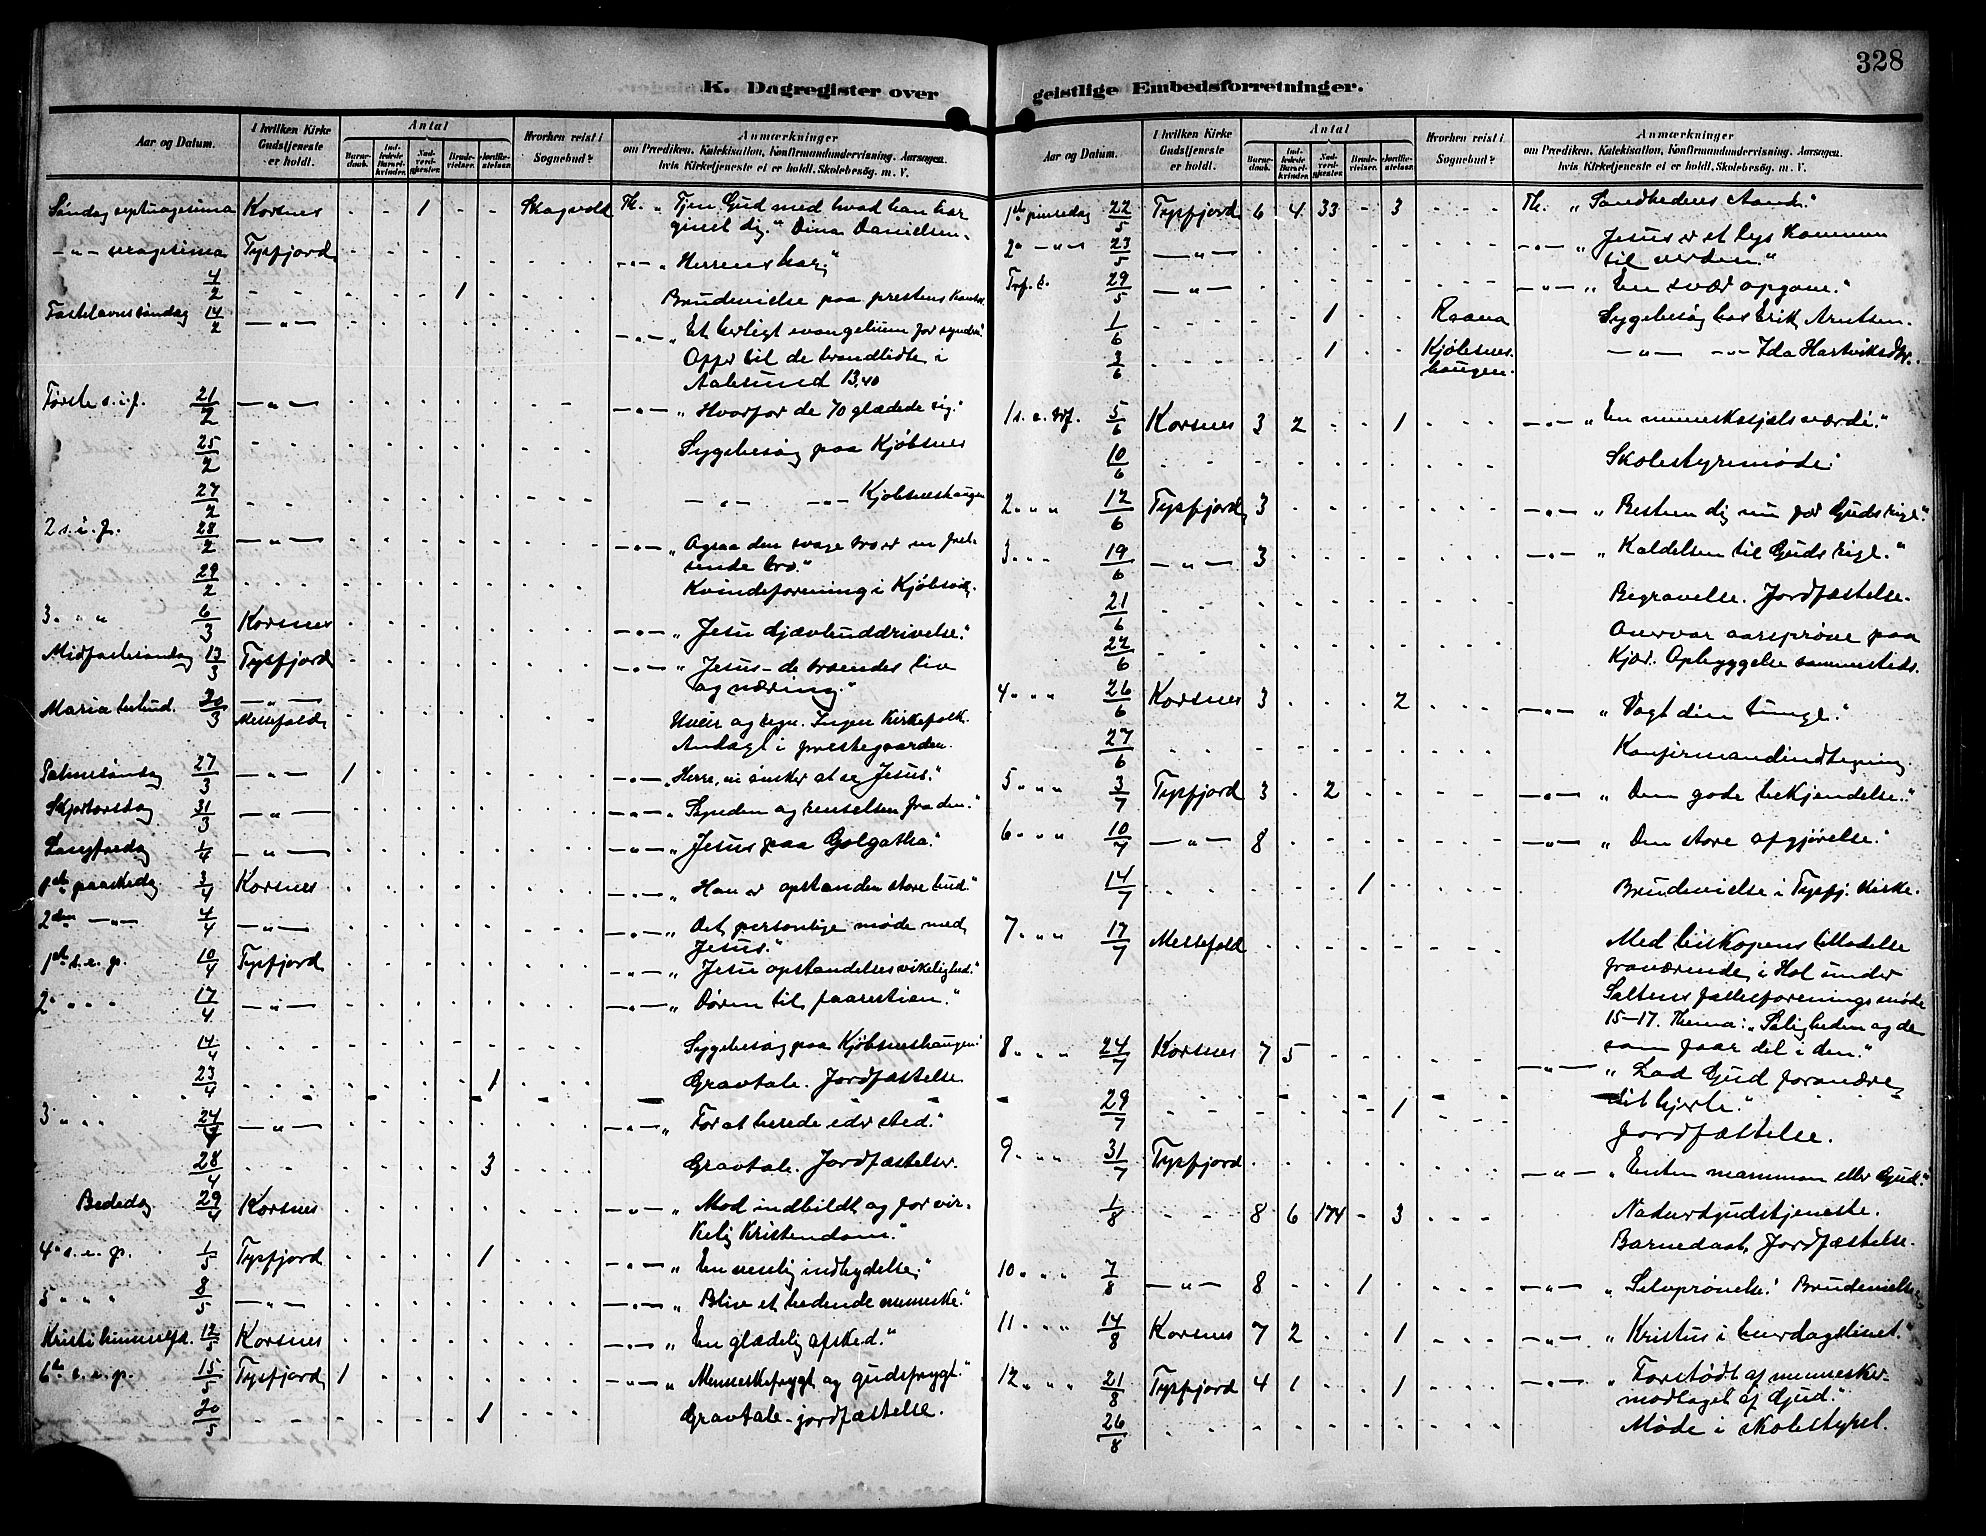 328
K. Dagregister over
Aar og Datum. | I hvilken Kirke Gudstjeneste er holdt. | Antal | Barne-daab. | Ind-ledede Barsel-kvinder. | Nad-verd-gjester. | Brude-vielser. | Jordfæ-stelser. | Hvorhen reist i Sognebud? | Anmærkninger om Prædiken, Katekisation, Konfirmandundervisning, Aarsagen, hvis Kirketjeneste ei er holdt, Skolebesøg, m. V.
Søndag septuagesima Korsnes - - 1 - - Skagvold Th. „Tjen Gud med hvad han har
givet dig." Dina Danielsen.
-"- sexagesima Tysfjord -"- „Herrens har,"
4/2 - - - - 1 Brudevielse paa prestens kontor.
Fastelavns søndag 14/2 -"- -"- „Et herligt evangelium for syndere."
Offer til de brandlidte i
Aalesund 13,40
Første s. i. f. 21/2 -"- -"- „Hvorfor de 70 glædede sig."
25/2 Sygebesøg paa Kjøbsnes
27/2 -"- -"- Kjøbsneshaugen
2 s. i. f. 28/2 -"- -"- „Ogsaa den svage tro er en frel-
sende tro."
29/2 Kvindeforening i Kjøbsvik.
3 " " 6/3 Korsnes -"- „Jesu djævleuddrivelse."
Midfastesøndag 13/3 Tysfjord -"- „Jesus - de troendes liv
og næring."
Maria bebud. 20/3 -"- Messefald Uveir og regn. Ingen kirkefolk.
Andagt i prestegaarden.
Palmesøndag 27/3 -"- 1 -"- „Herre, vi ønsker at se Jesus."
Skjærtorsdag 31/3 -"- -"- „Synden og renselsen fra den."
Langfredag 1/4 -"- -"- „Jesus paa Golgatha."
1ste paaskedag 3/4 Korsnes -"- „Han er opstanden store bud."
2den -"- 4/4 -"- -"- „Det personlige møde med
Jesus."
1ste s. e. p. 10/4 Tysfjord -"- „Jesu opstandelses virkelighed."
2 " " " 17/4 -"- -"- „Døren til faarestien."
14/4 Sygebesøg paa Kjøbsneshaugen.
23/4 1 Gravtale. Jordfæstelse
3 " " " 24/4 -"- -"- „For at berede eder sted."
28/4 3 Gravtale. Jordfæstelser.
Bededag 29/4 Korsnes -"- „Mod indbildt og for vir-
kelig Kristendom."
4 s. e. p. 1/5 Tysfjord 1 -"- „En venlig indbydelse;"
5 " " " 8/5 -"- -"- „Blive et bedende menneske."
Kristi himmelfd. 12/5 Korsnes -"- „En glædelig afsked."
6te s. e. p. 15/5 Tysfjord 1 -"- „Menneskefrygt og gudsfrygt."
20/5 1 Gravtale - jordfæstelse.
geistlige Embedsforretninger.
Aar og Datum. | I hvilken Kirke Gudstjeneste er holdt. | Antal | Barne-daab. | Ind-ledede Barsel-kvinder. | Nad-verd-gjester. | Brude-vielser. | Jordfæ-stelser. | Hvorhen reist i Sognebud? | Anmærkninger om Prædiken, Katekisation, Konfirmandundervisning, Aarsagen, hvis Kirketjeneste ei er holdt, Skolebesøg, m. V.
1ste pinsedag 22/5 Tysfjord 6 4 33 - 3 Th. „Sandhedens Aand."
2 -"- 23/5 -"- -"- „Jesus er et lys kommen
til verden."
Trf. s. 29/5 -"- -"- „En svær opgave."
1/6 1 Raana Sygebesøg hos Erik Arntsen.
3/6 1 Kjøbsnes-haugen. -"- -"- Ida Hartviksdtr.
1 s. e. trf. 5/6 Korsnes 3 2 - - 1 -"- „En menneskesjæls værdi."
10/6 Skolestyremøde.
2 " " 12/6 Tysfjord 3 -"- „Bestem dig nu for Guds rige."
3 " " 19/6 -"- 3 -"- „Kaldelsen til Guds rige."
21/6 Begravelse. Jordfæstelse.
22/6 Overvar aarsprøve paa
Kjær. Opbyggelse sammesteds.
4 " " 26/6 Korsnes 3 - - - 2 -"- „Vogt din tunge."
27/6 Konfirmandindtegning.
5 " " 3/7 Tysfjord 3 - 2 -"- „Den gode bekjendelse."
6 " " 10/7 -"- 8 -"- „Den store afgjørelse."
14/7 1 Brudevielse i Tysfj. kirke.
7 " " 17/7 Messefald Med biskopens tilladelse
fraværende i Hol under
Saltens fællesforenings møde
15-17. Thema: „Saligheden og de
som faar del i den."
8 " " 24/7 Korsnes 7 5 -"- „Lad Gud forandre
dit hjerte."
29/7 1 Jordfæstelse.
9 " " 31/7 Tysfjord -"- „Enten mammon eller Gud."
1/8 8 6 174 - 3 Naturgudstjeneste.
Barnedaab, Jordfæstelse.
10 " " 7/8 -"- 8 - - 1 -"- „Selvprøvelse! Brudevielse
11 " " 14/8 Korsnes 7 2 - - 1 -"- „Kristus i hverdagslivet."
12 " " 21/8 Tysfjord 4 1 - - 1 „Forstødt af mennesker-
modtaget af Gud."
26/8 Møde i skolestyret.